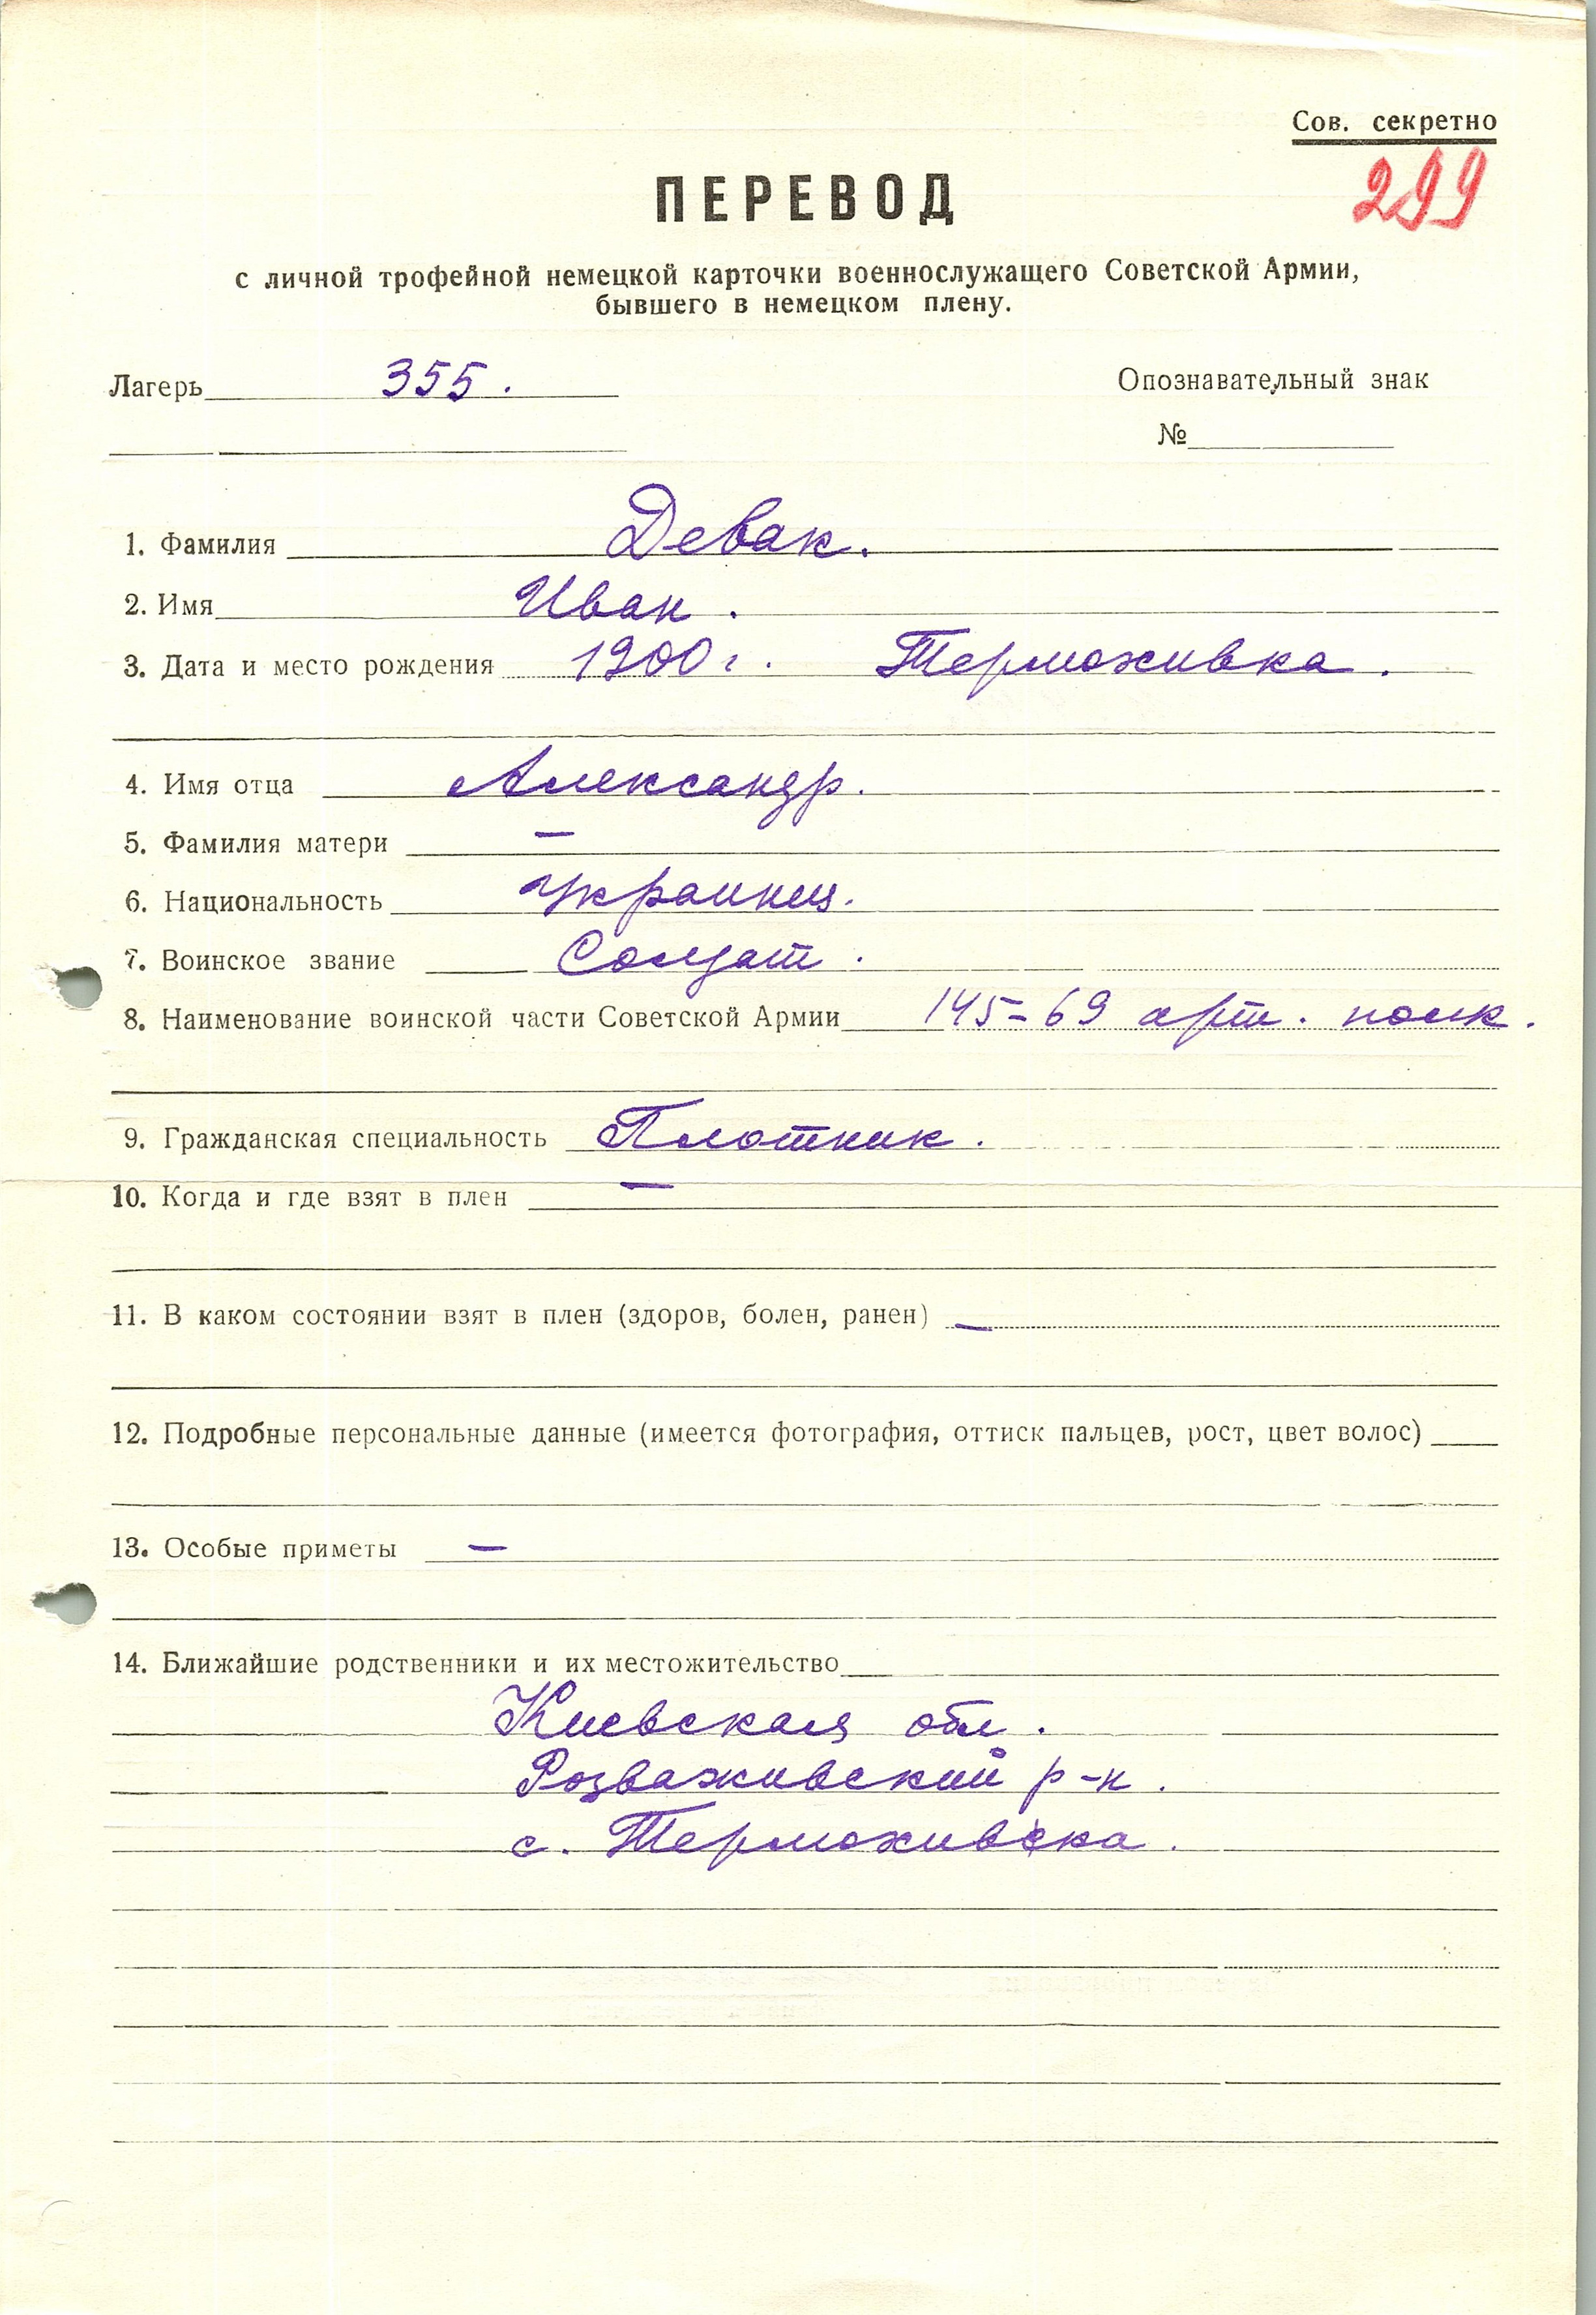 Сов. секретно
299
ПЕРЕВОД
с личной трофейной немецкой карточки военнослужащего Советской Армии,
бывшего в немецком плену.
Лагерь 355.
Опознавательный знак
№
1. Фамилия Девак.
2. Имя Иван.
3. Дата и место рождения 1900 г. Терможивка.
4. Имя отца Александр.
5. Фамилия матери —
6. Национальность украинец.
7. Воинское звание Солдат.
8. Наименование воинской части Советской Армии 145-69 арт. полк.
9. Гражданская специальность Плотник.
10. Когда и где взят в плен —
11. В каком состоянии взят в плен (здоров, болен, ранен) —
12. Подробные персональные данные (имеется фотография, оттиск пальцев, рост, цвет волос)
13. Особые приметы —
14. Ближайшие родственники и их местожительство
Киевская обл.
Розваживский р-н.
с. Терможивска.